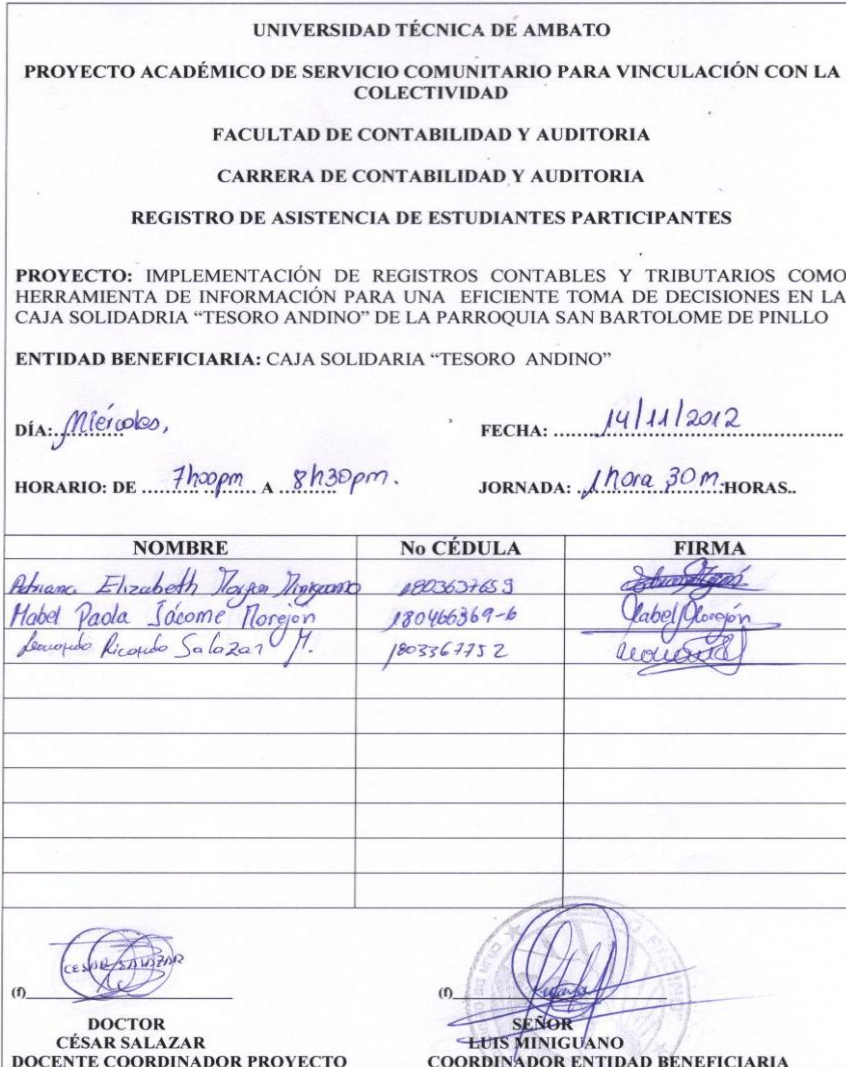 UNIVERSIDAD TÉCNICA DE AMBATO
PROYECTO ACADÉMICO DE SERVICIO COMUNITARIO PARA VINCULACIÓN CON LA
COLECTIVIDAD
FACULTAD DE CONTABILIDAD Y AUDITORIA
CARRERA DE CONTABILIDAD Y AUDITORIA
REGISTRO DE ASISTENCIA DE ESTUDIANTES PARTICIPANTES
PROYECTO: IMPLEMENTACIÓN DE REGISTROS CONTABLES Y TRIBUTARIOS COMO
HERRAMIENTA DE INFORMACIÓN PARA UNA EFICIENTE TOMA DE DECISIONES EN LA
CAJA SOLIDADRIA “TESORO ANDINO” DE LA PARROQUIA SAN BARTOLOME DE PINLLO
ENTIDAD BENEFICIARIA: CAJA SOLIDARIA “TESORO ANDINO”
DÍA: Miércoles, FECHA: 14/11/2012
HORARIO: DE 7h00pm A 8h30pm. JORNADA: 1 hora 30 m. HORAS..
NOMBRE No CÉDULA FIRMA
Adriana Elizabeth 1803637659
Mabel Paola Jácome Morejón 180466369-6 Mabel Morejón
Leonardo Ricardo Salazar M. 1803367752
CESAR SALAZAR
(f) (f)
DOCTOR SEÑOR
CÉSAR SALAZAR LUIS MINIGUANO
DOCENTE COORDINADOR PROYECTO COORDINADOR ENTIDAD BENEFICIARIA